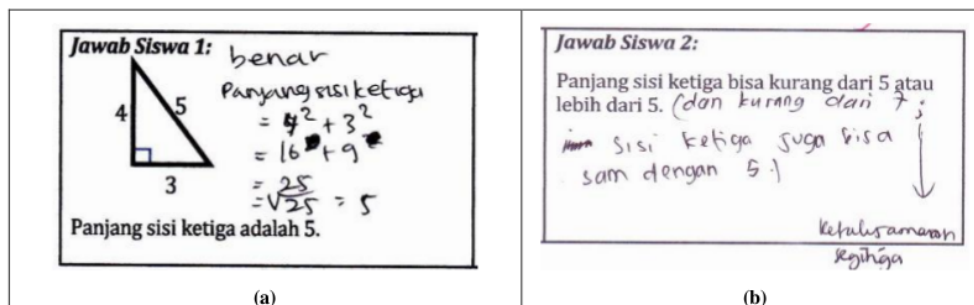 Jawab Siswa 1:
benar
4
5
3
Panjang sisi ketiga
= 4² + 3²
= 16 + 9
= 25
= √25 = 5
Panjang sisi ketiga adalah 5.
(a)
Jawab Siswa 2:
Panjang sisi ketiga bisa kurang dari 5 atau
lebih dari 5. (dan kurang dari 7;
sisi ketiga juga bisa
sam dengan 5.)
segitiga
(b)